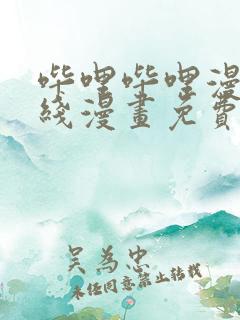 哔哩哔哩漫
线漫画免费
吴为忠
未经同意禁止转载